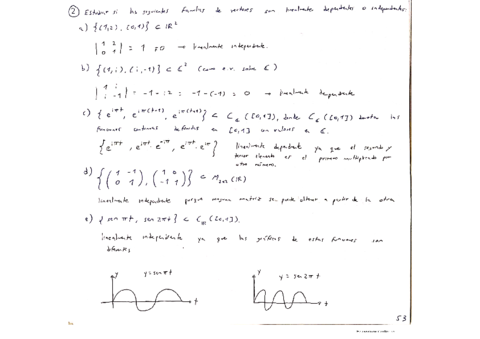 ② Estudiar si las siguientes familias de vectores son linealmente dependientes o independientes.
a) {(1,2), (0,1)} ⊂ ℝ²
|1 2; 0 1| = 1 ≠ 0 → linealmente independiente.
b) {(1,i), (i,-1)} ⊂ ℂ² (como e.v. sobre ℂ)
|1 i; i -1| = -1 - i² = -1-(-1) = 0 → linealmente dependiente
c) {e^{iπt}, e^{iπ(t-1)}, e^{iπ(t+1)}} ⊂ C_ℂ([0,1]), donde C_ℂ([0,1]) las
funciones continuas definidas en [0,1] con valores en ℂ.
{e^{iπt}, e^{iπt}·e^{-iπ}, e^{iπt}·e^{iπ}} linealmente dependiente ya que el segundo y
tercer elemento es el primero multiplicado por
otro número.
d) {(1 -1; 0 1), (1 0; -1 1)} ⊂ M₂ₓ₂(ℝ)
linealmente independiente porque ninguna matriz se puede obtener a partir de la otra
e) {sen πt, sen 2πt} ⊂ C_ℝ([0,1]).
linealmente independiente ya que las gráficas de estas funciones son
diferentes
y y=sen πt t
y y=sen 2πt t
53